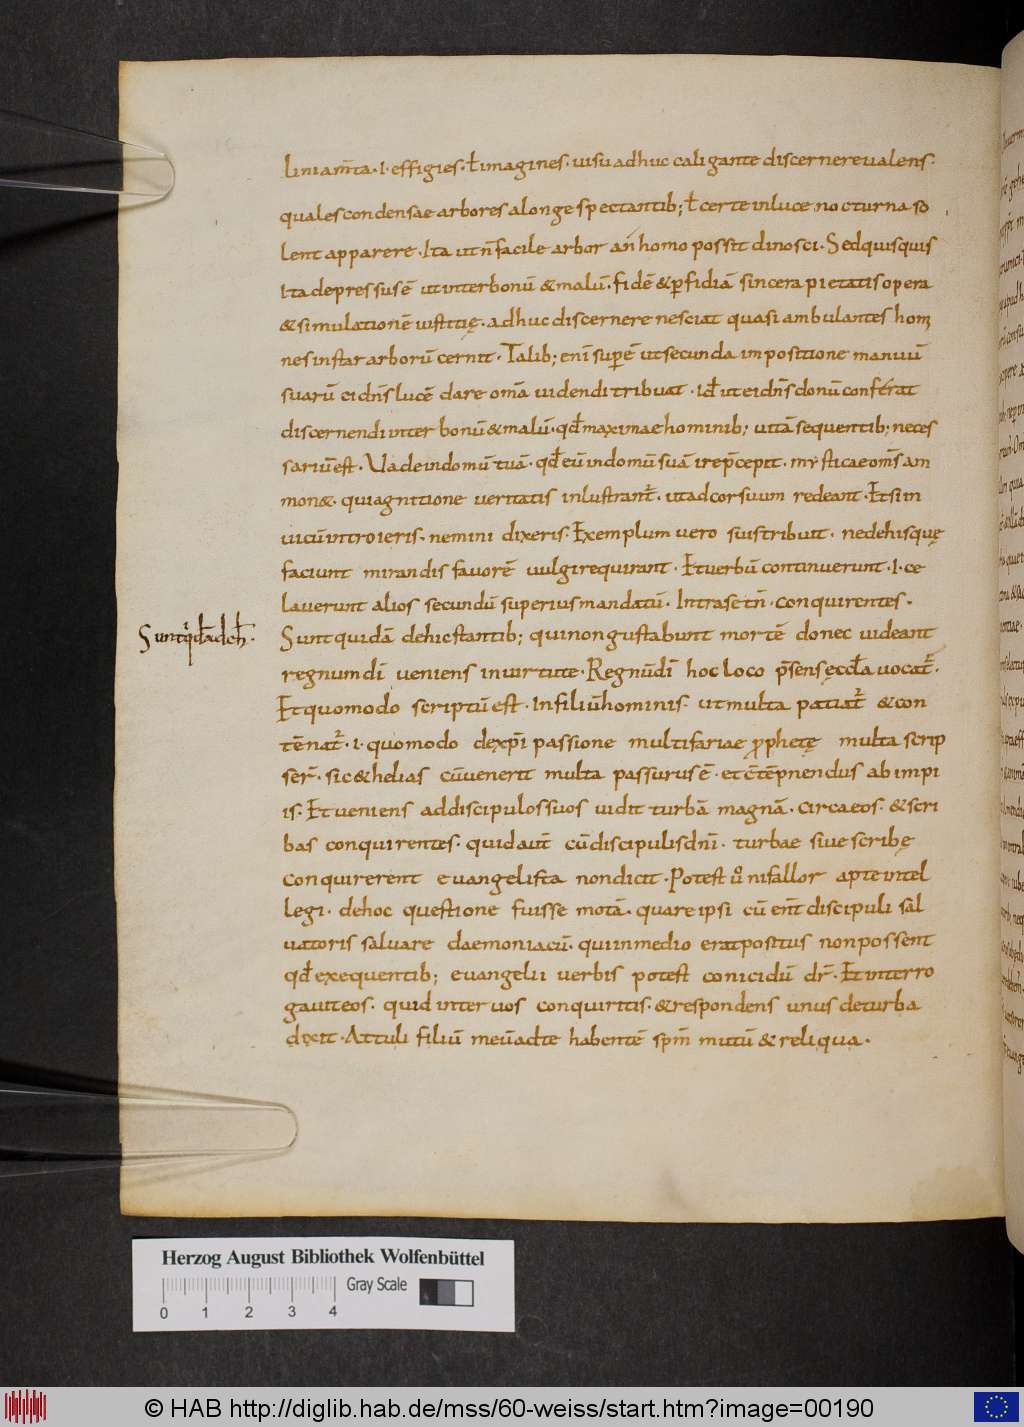 liniam̅ta · i · effigies · ł imagines · uisu adhuc caligante discernere ualens ·
quales condensae arbores a longe spectantib; ł certe in luce nocturna so
lent apparere · Ita ut n̅ facile arbor an homo possit dinosci · Sed quisquis
ita depressus e̅ ut inter bonu̅ & malu̅ · fide̅ & ꝑfidia̅ sincera pietatis opera
& simulatione̅ iustitię · adhuc discernere nesciat quasi ambulantes homi
nes instar arboru̅ cernit · Talib; eni̅ super e̅ ut secunda impositione manuu̅
suaru̅ ei dn̅s luce̅ dare om̅a uidendi tribuat · id̅ ut ei dn̅s donu̅ conferat
discernendi inter bonu̅ & malu̅ · qd̅ maxima e hominib; uita̅ sequentib; neces
sariu̅ est · Uade in domu̅ tua̅ · qd̅ eu̅ in domu̅ sua̅ ire p̅cepit · mysticae om̅s am
mon& · qui agnitione ueritatis inlustrant᷑ · ut ad cor suum redeant · Et si in
uicu̅ introieris · nemini dixeris · Exemplum uero suis tribuit · ne de his quę
faciunt mirandis fauore̅ uulgi requirant · Et uerbu̅ continuerunt · i · ce
lauerunt alios secundu̅ superius mandatu̅ · Intrase tn̅ · conquirentes ·
Sunt qͥda̅ de h̅ ·
Sunt quida̅ de hic stantib; qui non gustabunt morte̅ donec uideant
regnum di̅ ueniens in uirtute · Regnu̅ di̅ hoc loco p̅sens ęccl̅a uocat᷑ ·
Et quomodo scriptu̅ est · In filiu̅ hominis · ut multa patiat᷑ & con
te̅nat᷑ · i · quomodo de xp̅i passione multifariae ꝓphetę multa scrip
ser̅ · sic & helias cu̅ uenerit multa passurus e̅ · et c̅te̅pnendus ab impi
is · Et ueniens ad discipulos suos uidit turba̅ magna̅ · circa eos · & scri
bas conquirentes · quid aut̅ cu̅ discipulis dn̅i · turbae siue scribę
conquirerent euangelista non dicit · Potest uͦ ni fallor apte intel
legi · de hoc questione fuisse mota̅ · quare ipsi cu̅ en̅t discipuli sal
uatoris saluare daemoniacu̅ · qui in medio erat positus non possent
qd̅ exequentib; euangelii uerbis potest conici du̅ dr̅ · Et interro
gauit eos · quid inter uos conquiritis · & respondens unus de turba
dixit · Attuli filiu̅ meu̅ ad te habente̅ spm̅ mutu̅ & reliqua ·
Herzog August Bibliothek Wolfenbüttel
Gray Scale
0 1 2 3 4
© HAB http://diglib.hab.de/mss/60-weiss/start.htm?image=00190